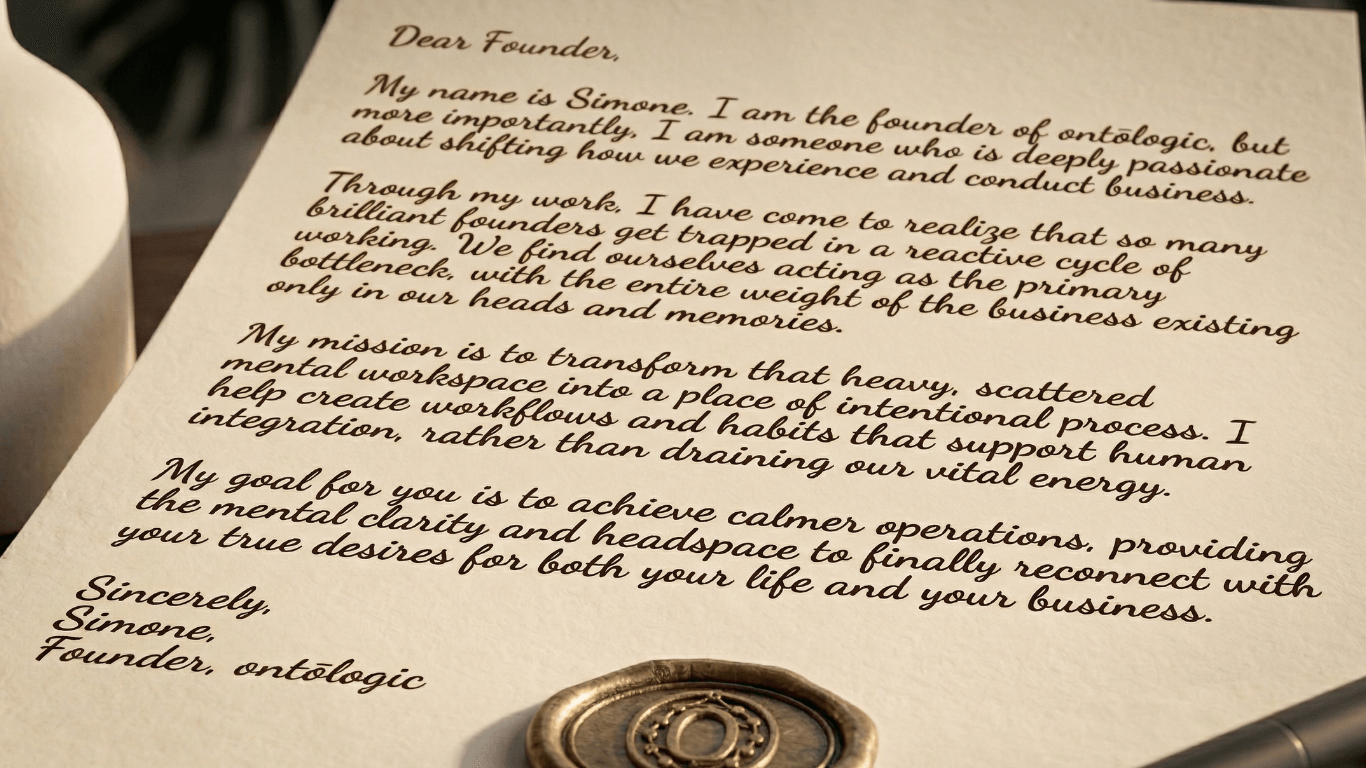 Dear Founder,
My name is Simone. I am the founder of ontōlogic, but
more importantly, I am someone who is deeply passionate
about shifting how we experience and conduct business.
Through my work, I have come to realize that so many
brilliant founders get trapped in a reactive cycle of
working. We find ourselves acting as the primary
bottleneck, with the entire weight of the business existing
only in our heads and memories.
My mission is to transform that heavy, scattered
mental workspace into a place of intentional process. I
help create workflows and habits that support human
integration, rather than draining our vital energy.
My goal for you is to achieve calmer operations, providing
the mental clarity and headspace to finally reconnect with
your true desires for both your life and your business.
Sincerely,
Simone,
Founder, ontōlogic
O